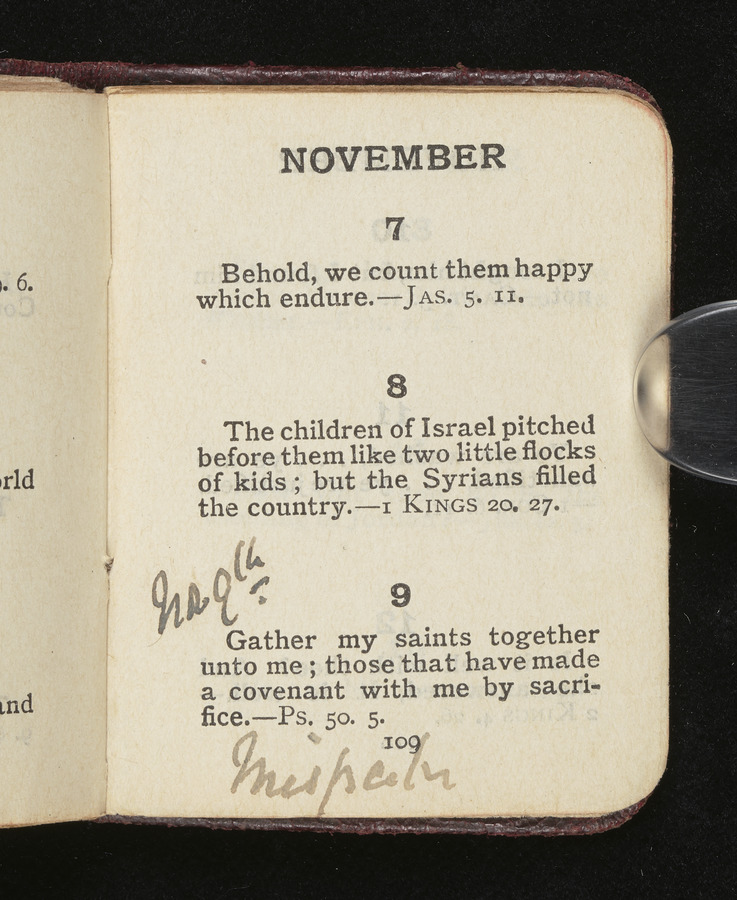 . 6.
rld
and
NOVEMBER
7
Behold, we count them happy
which endure.—JAS. 5. 11.
8
The children of Israel pitched
before them like two little flocks
of kids; but the Syrians filled
the country.—1 KINGS 20. 27.
9
Gather my saints together
unto me; those that have made
a covenant with me by sacri-
fice.—Ps. 50. 5.
109
Mispah